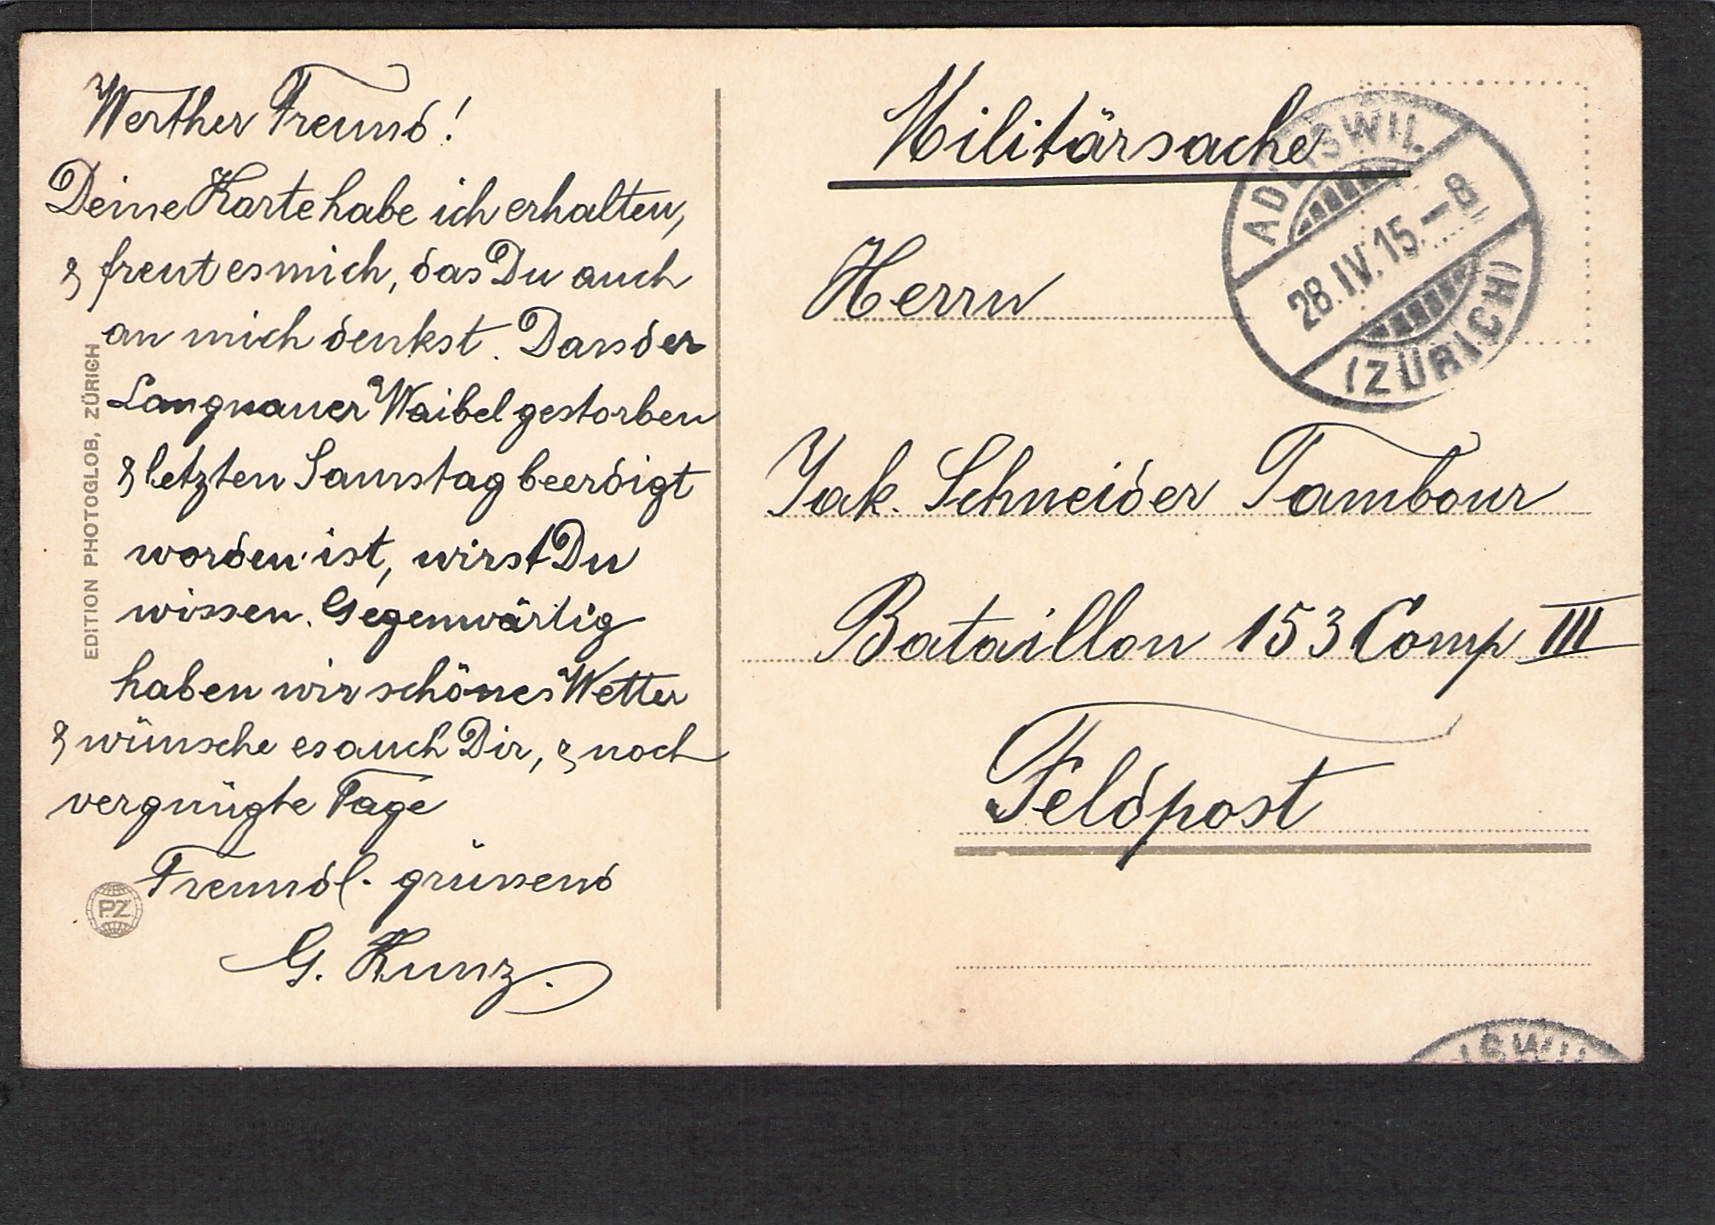 Werther Freund!
Deine Karte habe ich erhalten,
& freut es mich, das Du auch
an mich denkst. Dass der
Langnauer Waibel gestorben
& letzten Samstag beerdigt
worden ist, wirst Du
wissen. Gegenwärtig
haben wir schönes Wetter
& wünsche es auch Dir, & noch
vergnügte Tage
Freundl. grüssend
G. Kunz.
EDITION PHOTOGLOB, ZÜRICH
PZ
Militärsache
ADLISWIL
28.IV.15.-8
(ZÜRICH)
Herrn
Jak. Schneider Tambour
Bataillon 153 Comp III
Feldpost
ISWIL